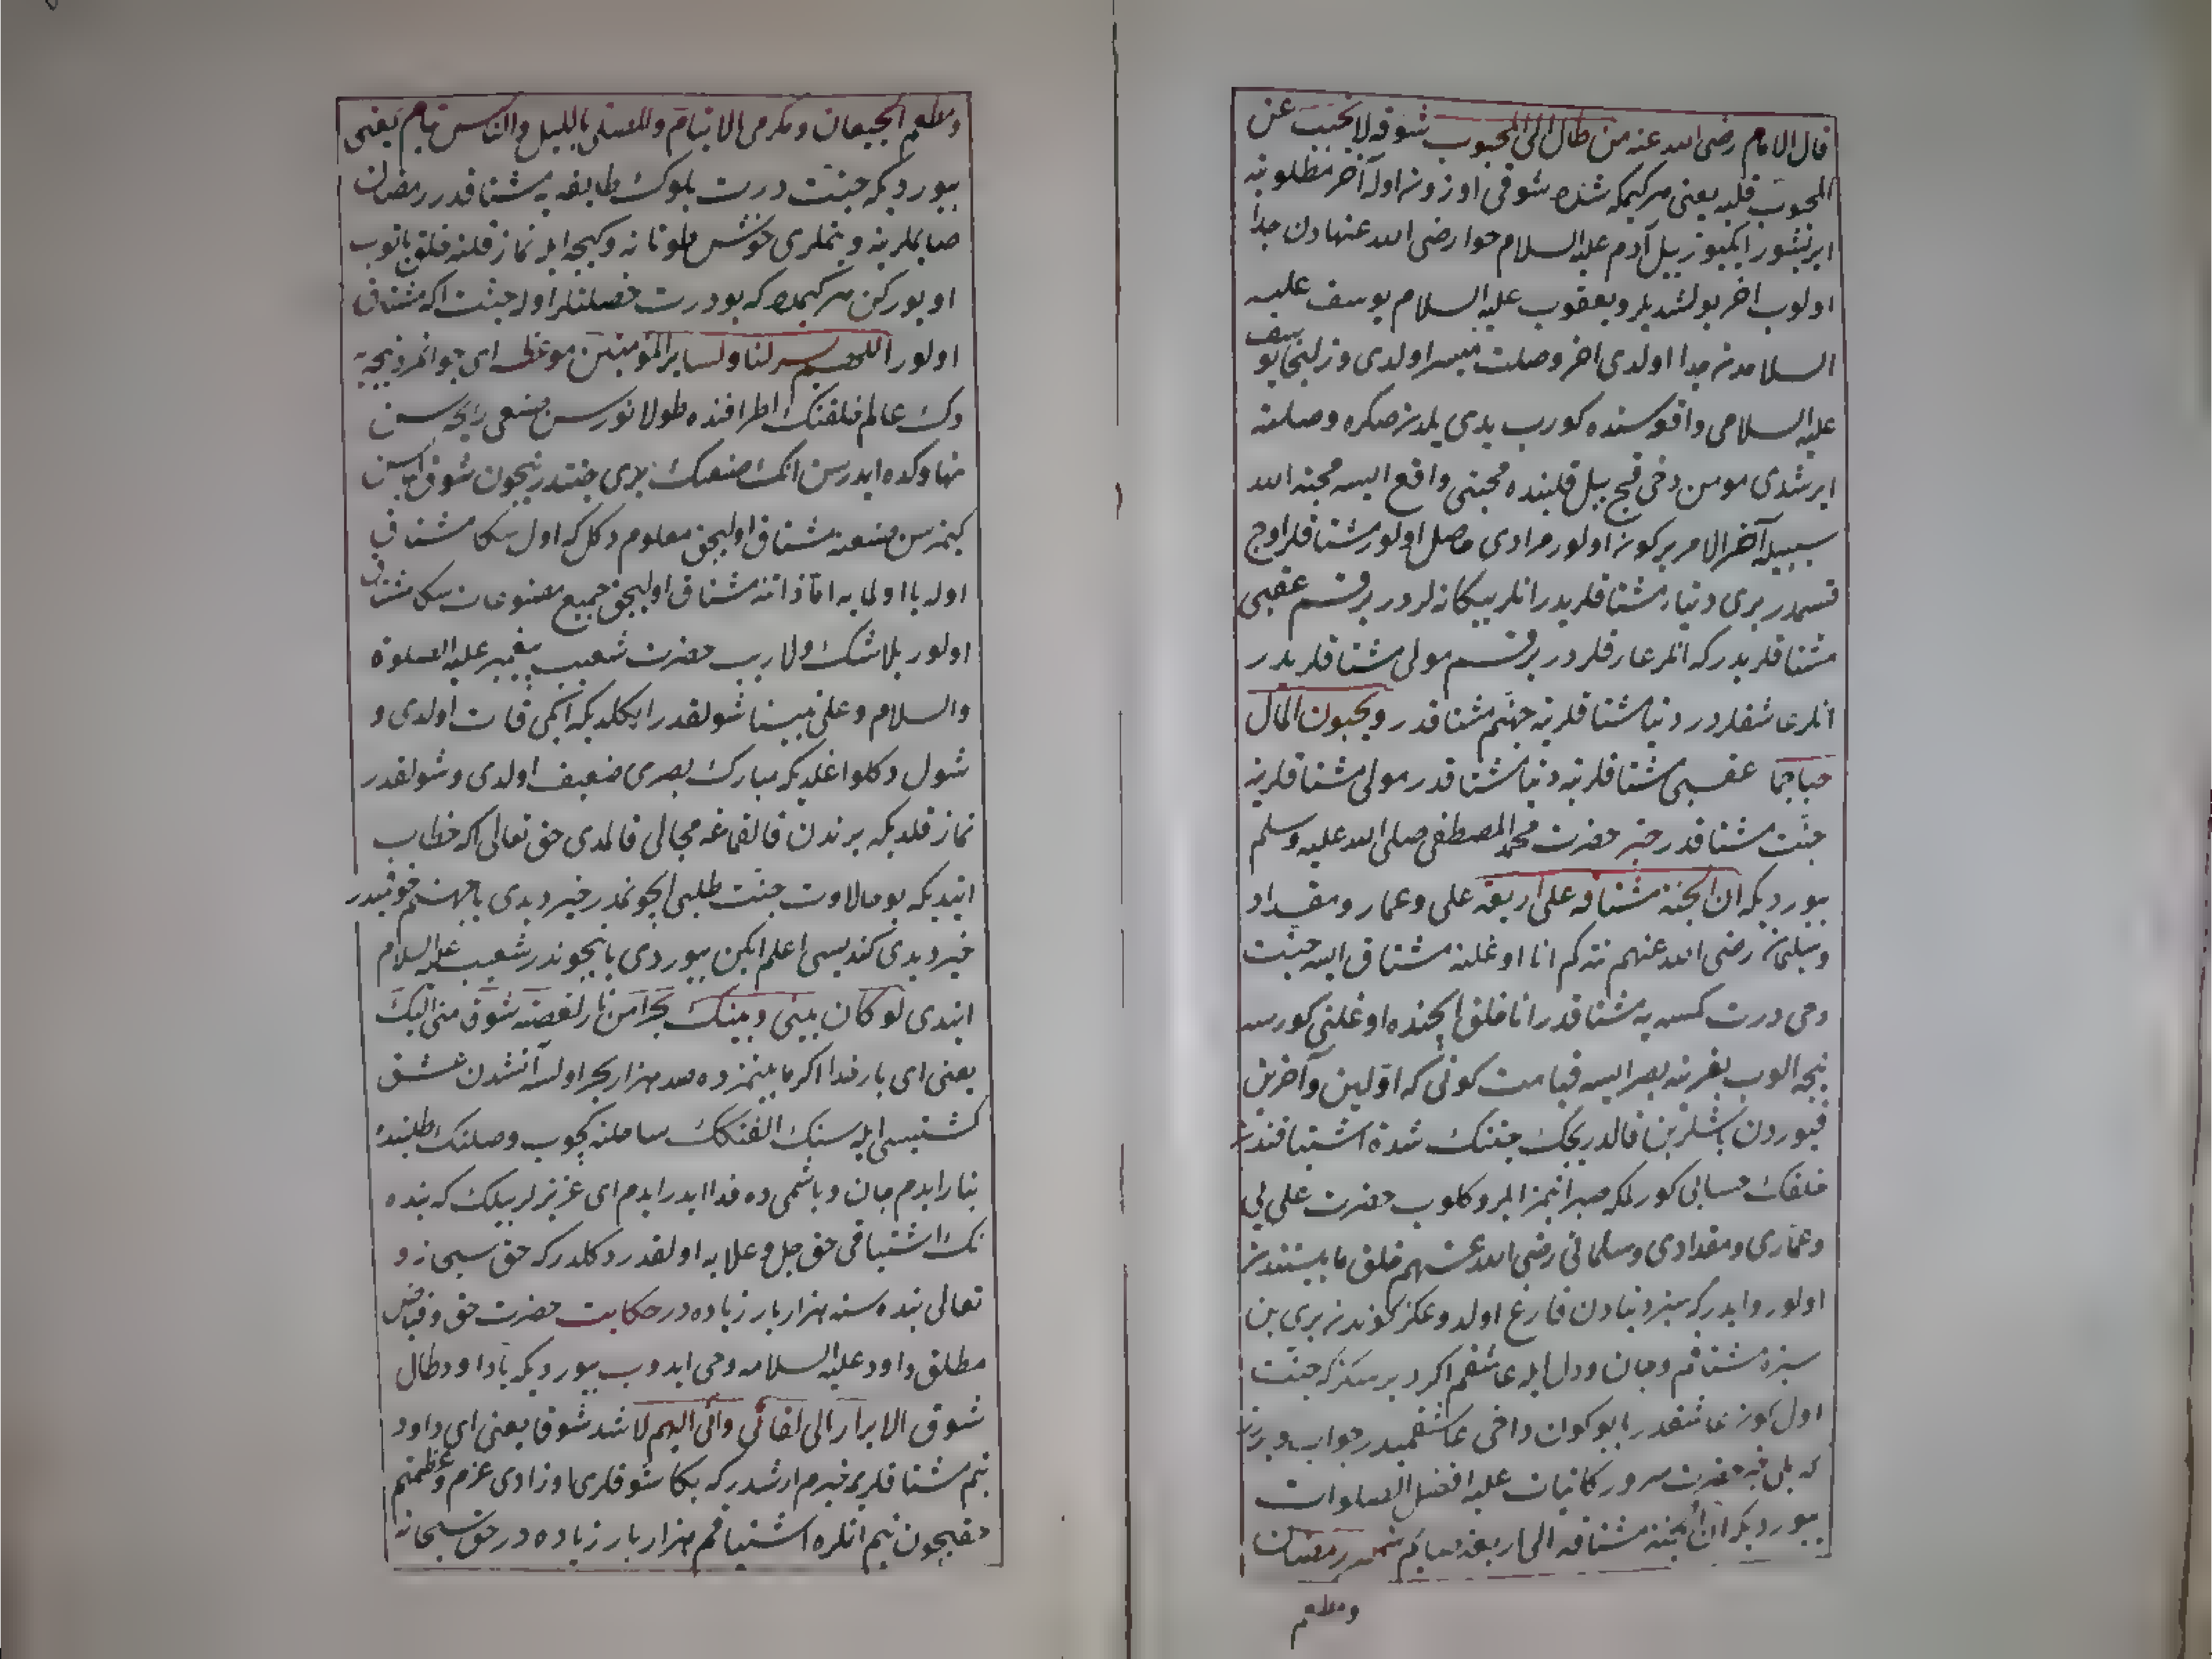 قال الامام رضی الله عنه من طال الی المحبوب شوقه لا یحجب عن
المحبوب قلبه یعنی هر کیمکه شدة شوقی اوزونه اوله آخر مطلوبنه
ایریشور ایکیوز ییل آدم علیه السلام حوا رضی الله عنهادن جدا
اولوب اخر بولشدیلر و یعقوب علیه السلام یوسف علیه
السلامدن جدا اولدی اخر وصلت میسر اولدی و زلیخا یوسف
علیه السلامی واقعه سنده کورب یدی یلدن صکره وصلته
ایرشدی مومن دخی قچ ییل قلبنده محبتی واقع ایسه محبة الله
سببیله آخر الامر بر کون اولور مرادی حاصل اولور مشتاقلر اوچ
قسمدر بری دنیا مشتاقلریدر انلر بیکانه لردر بر قسم عقبی
مشتاقلریدر که انلر عارفلردر بر قسم مولی مشتاقلریدر
انلر عاشقلردر دنیا مشتاقلرینه جهنم مشتاقدر و یحبون المال
حبا جما عقبی مشتاقلرینه دنیا مشتاقدر مولی مشتاقلرینه
جنت مشتاقدر خبر حضرت محمد المصطفی صلی الله علیه وسلم
بیوردیکه ان الجنة مشتاقه علی اربعة علی و عمار و مقداد
و سلمان رضی الله عنهم نته کم انا اوغلنه مشتاق ایسه جنت
دخی درت کمسه یه مشتاقدر انا خلق ایچنده اوغلنی کورسه
نیجه الوب بغرینه بصر ایسه قیامت کونی که اولین و آخرین
قبوردن باشلرین قالدریجک جنتک شدة اشتیاقندن
خلقک حسابی کورلمکه صبر ایتمز ایلرو کلوب حضرت علی یی
و عماری و مقدادی و سلمانی رضی الله عنهم خلق مابیننده
اولور و ایدر که سز دنیادن فارغ اولدوغکز کوندن بری بن
سزه مشتاقم و جان و دل ایله عاشقم اکر دیرسکز که جنت
اول کون عاشقدر یا بو کون داخی عاشقمیدر جواب ویررز
که بلی حضرت سرور کائنات علیه افضل الصلوات
بیوردیکه ان الجنة مشتاقه الی اربعة صایم شهر رمضان
ومطعم
ومطعم الجیعان و مکرمی الایتام والمصلی باللیل والناس نیام یعنی
بیوردیکه جنت درت بلوک طایفه یه مشتاقدر رمضان
صایملرینه و یتملری خوش طوتانه و کیجه ایله نماز قلنه خلق یاتوب
اویورکن هر کیمده که بو درت خصلتلر اوله جنت اکه مشتاق
اولور اللهم یسر لنا ولسایر المؤمنین موعظه ای جوانمرد نیجه
دک عالم خلقنک اطرافنده طولانورسن صنعی
کتمزسن صنعنه مشتاق اولیجق معلوم دکل که اول سکا مشتاق
اوله یا اولمایه اما ذاتنه مشتاق اولیجق جمیع مصنوعات سکا مشتاق
اولور بلا شک ولا ریب حضرت شعیب پیغمبر علیه الصلوة
والسلام وعلی نبینا شولقدر ایکلدیکه ایکی قات اولدی و
شول دکلو اغلدیکه مبارک بصری ضعیف اولدی و شولقدر
نماز قلدیکه یرندن قالقماغه مجالی قالمدی حق تعالی اکه خطاب
ایتدیکه بو حالاوت جنت طلبی ایچونمدر خیر دیدی یا جهنم خوفیدر
خیر دیدی کندیسی اعلم ایکن بیوردی یا نچوندر شعیب علیه السلام
ایتدی لو کان بینی و بینک بحرا من نار لغصته شوق منی الیک
یعنی ای بار خدا اکر مابینمزده صد هزار بحر اولسه آتشدن عشق
کشتیسی ایله سنک الفتکک ساحلنه کچوب وصلتک طلبنده
نثار ایدرم جان و باشمی ده فدا ایدرایدم ای عزیزلر بیلک که بنده
نک اشتیاقی حق جل و علایه اولقدر دکلدر که حق سبحانه و
تعالی بنده سنه هزار بار زیاده در حکایت حضرت حق و فیاض
مطلق داود علیه السلامه وحی ایدوب بیوردیکه یا داود طال
شوق الابرار الی لقائی وانی الیهم لاشد شوقا یعنی ای داود
بنم مشتاقلریمه خبرم ارشدر که بکا شوقلری اوزادی عزم و عظمتم
حقیچون بنم انلره اشتیاقم هزار بار زیاده در حق سبحانه